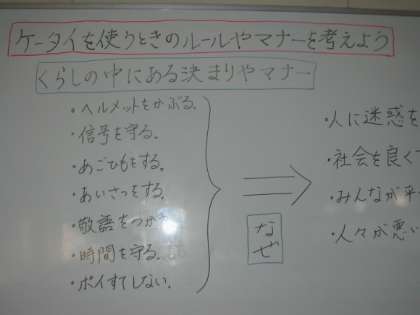 ケータイを使うときのルールやマナーを考えよう
くらしの中にある決まりやマナー
・ヘルメットをかぶる。
・信号を守る。
・あごひもをする。
・あいさつをする。
・敬語をつかう
・時間を守る。
・ポイすてしない。
なぜ
・人に迷惑を
・社会を良く
・みんなが
・人々が悪い